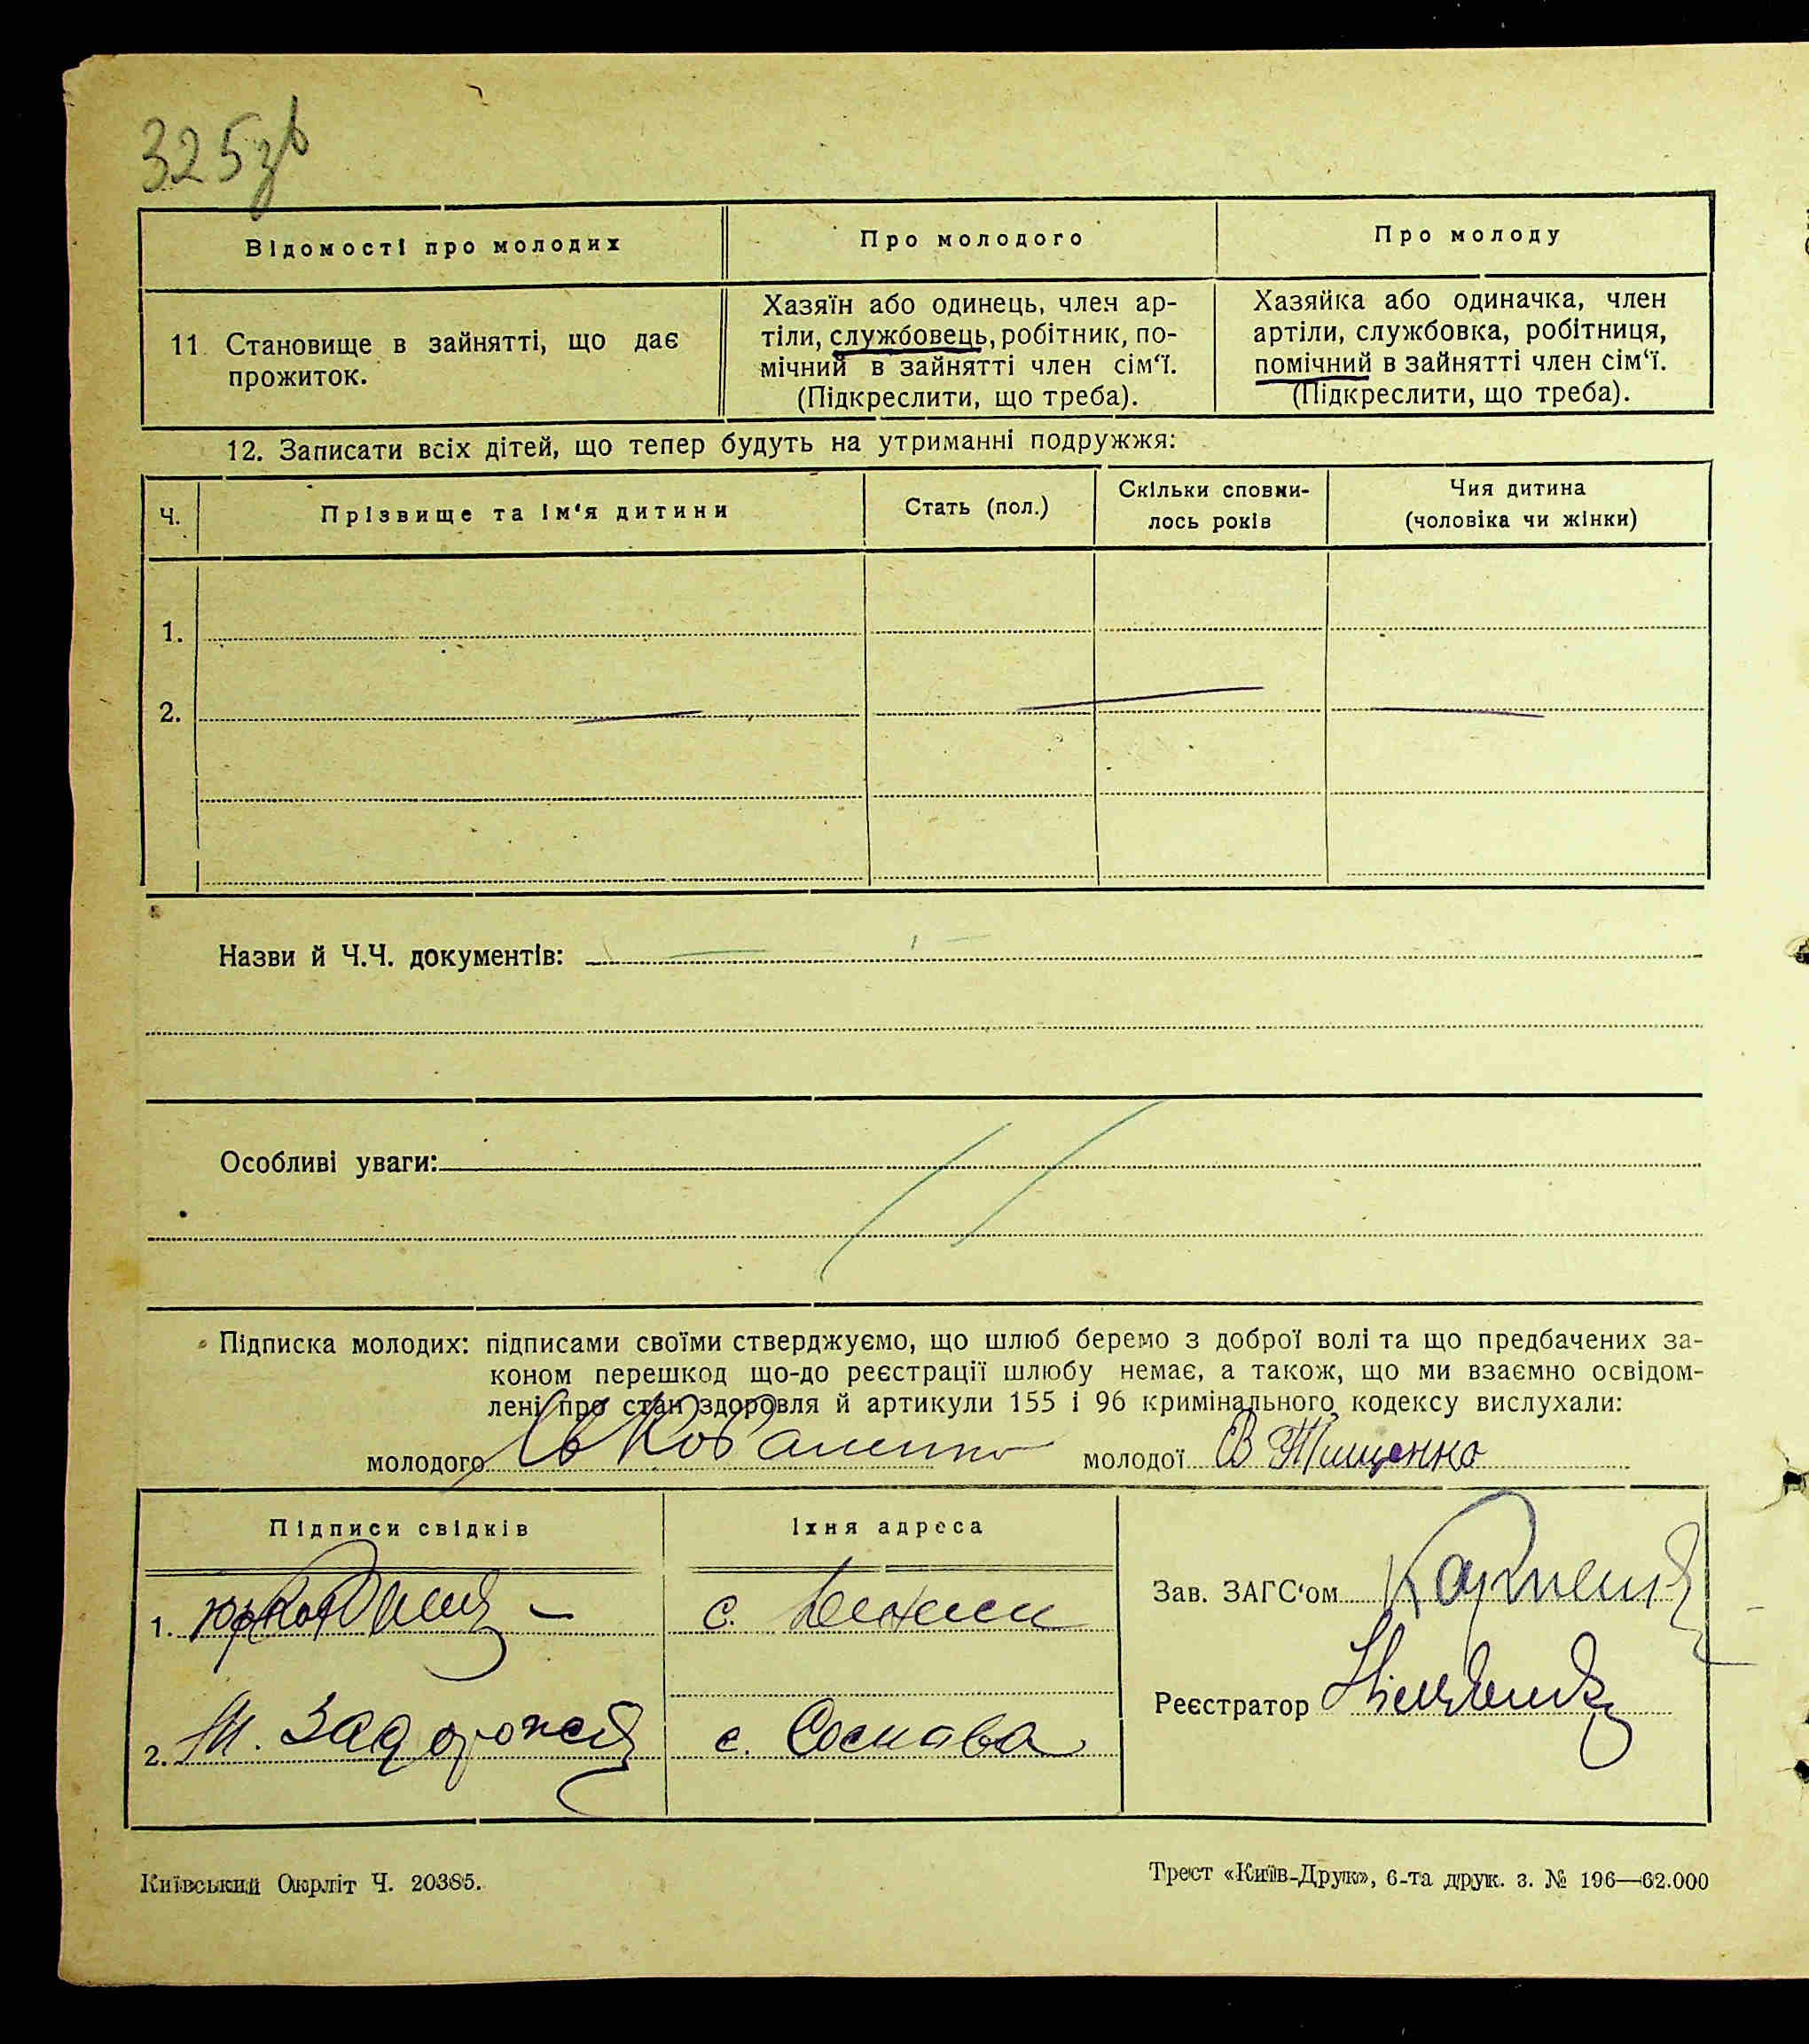 325зв
Відомості про молодих
Про молодого
Про молоду
11. Становище в зайнятті, що дає
прожиток.
Хазяїн або одинець, член ар-
тіли, службовець, робітник, по-
мічний в зайнятті член сім‘ї.
(Підкреслити, що треба).
Хазяйка або одиначка, член
артіли, службовка, робітниця,
помічний в зайнятті член сім‘ї.
(Підкреслити, що треба).
12. Записати всіх дітей, що тепер будуть на утриманні подружжя:
Ч.
Прізвище та ім‘я дитини
Стать (пол.)
Скільки сповни-
лось років
Чия дитина
(чоловіка чи жінки)
1.
2.
Назви й Ч.Ч. документів:
Особливі уваги:
Підписка молодих: підписами своїми стверджуємо, що шлюб беремо з доброї волі та що предбачених за-
коном перешкод що-до реєстрації шлюбу немає, а також, що ми взаємно освідом-
лені про стан здоровля й артикули 155 і 96 кримінального кодексу вислухали:
молодого Коваленко молодої В Тищенко
Підписи свідків
Їхня адреса
1.
с.
2. М. Задорожній
с. Соснова
Зав. ЗАГС‘ом
Реєстратор
Київський Окрліт Ч. 20385.
Трест «Київ-Друк», 6-та друк. з. № 196—62.000